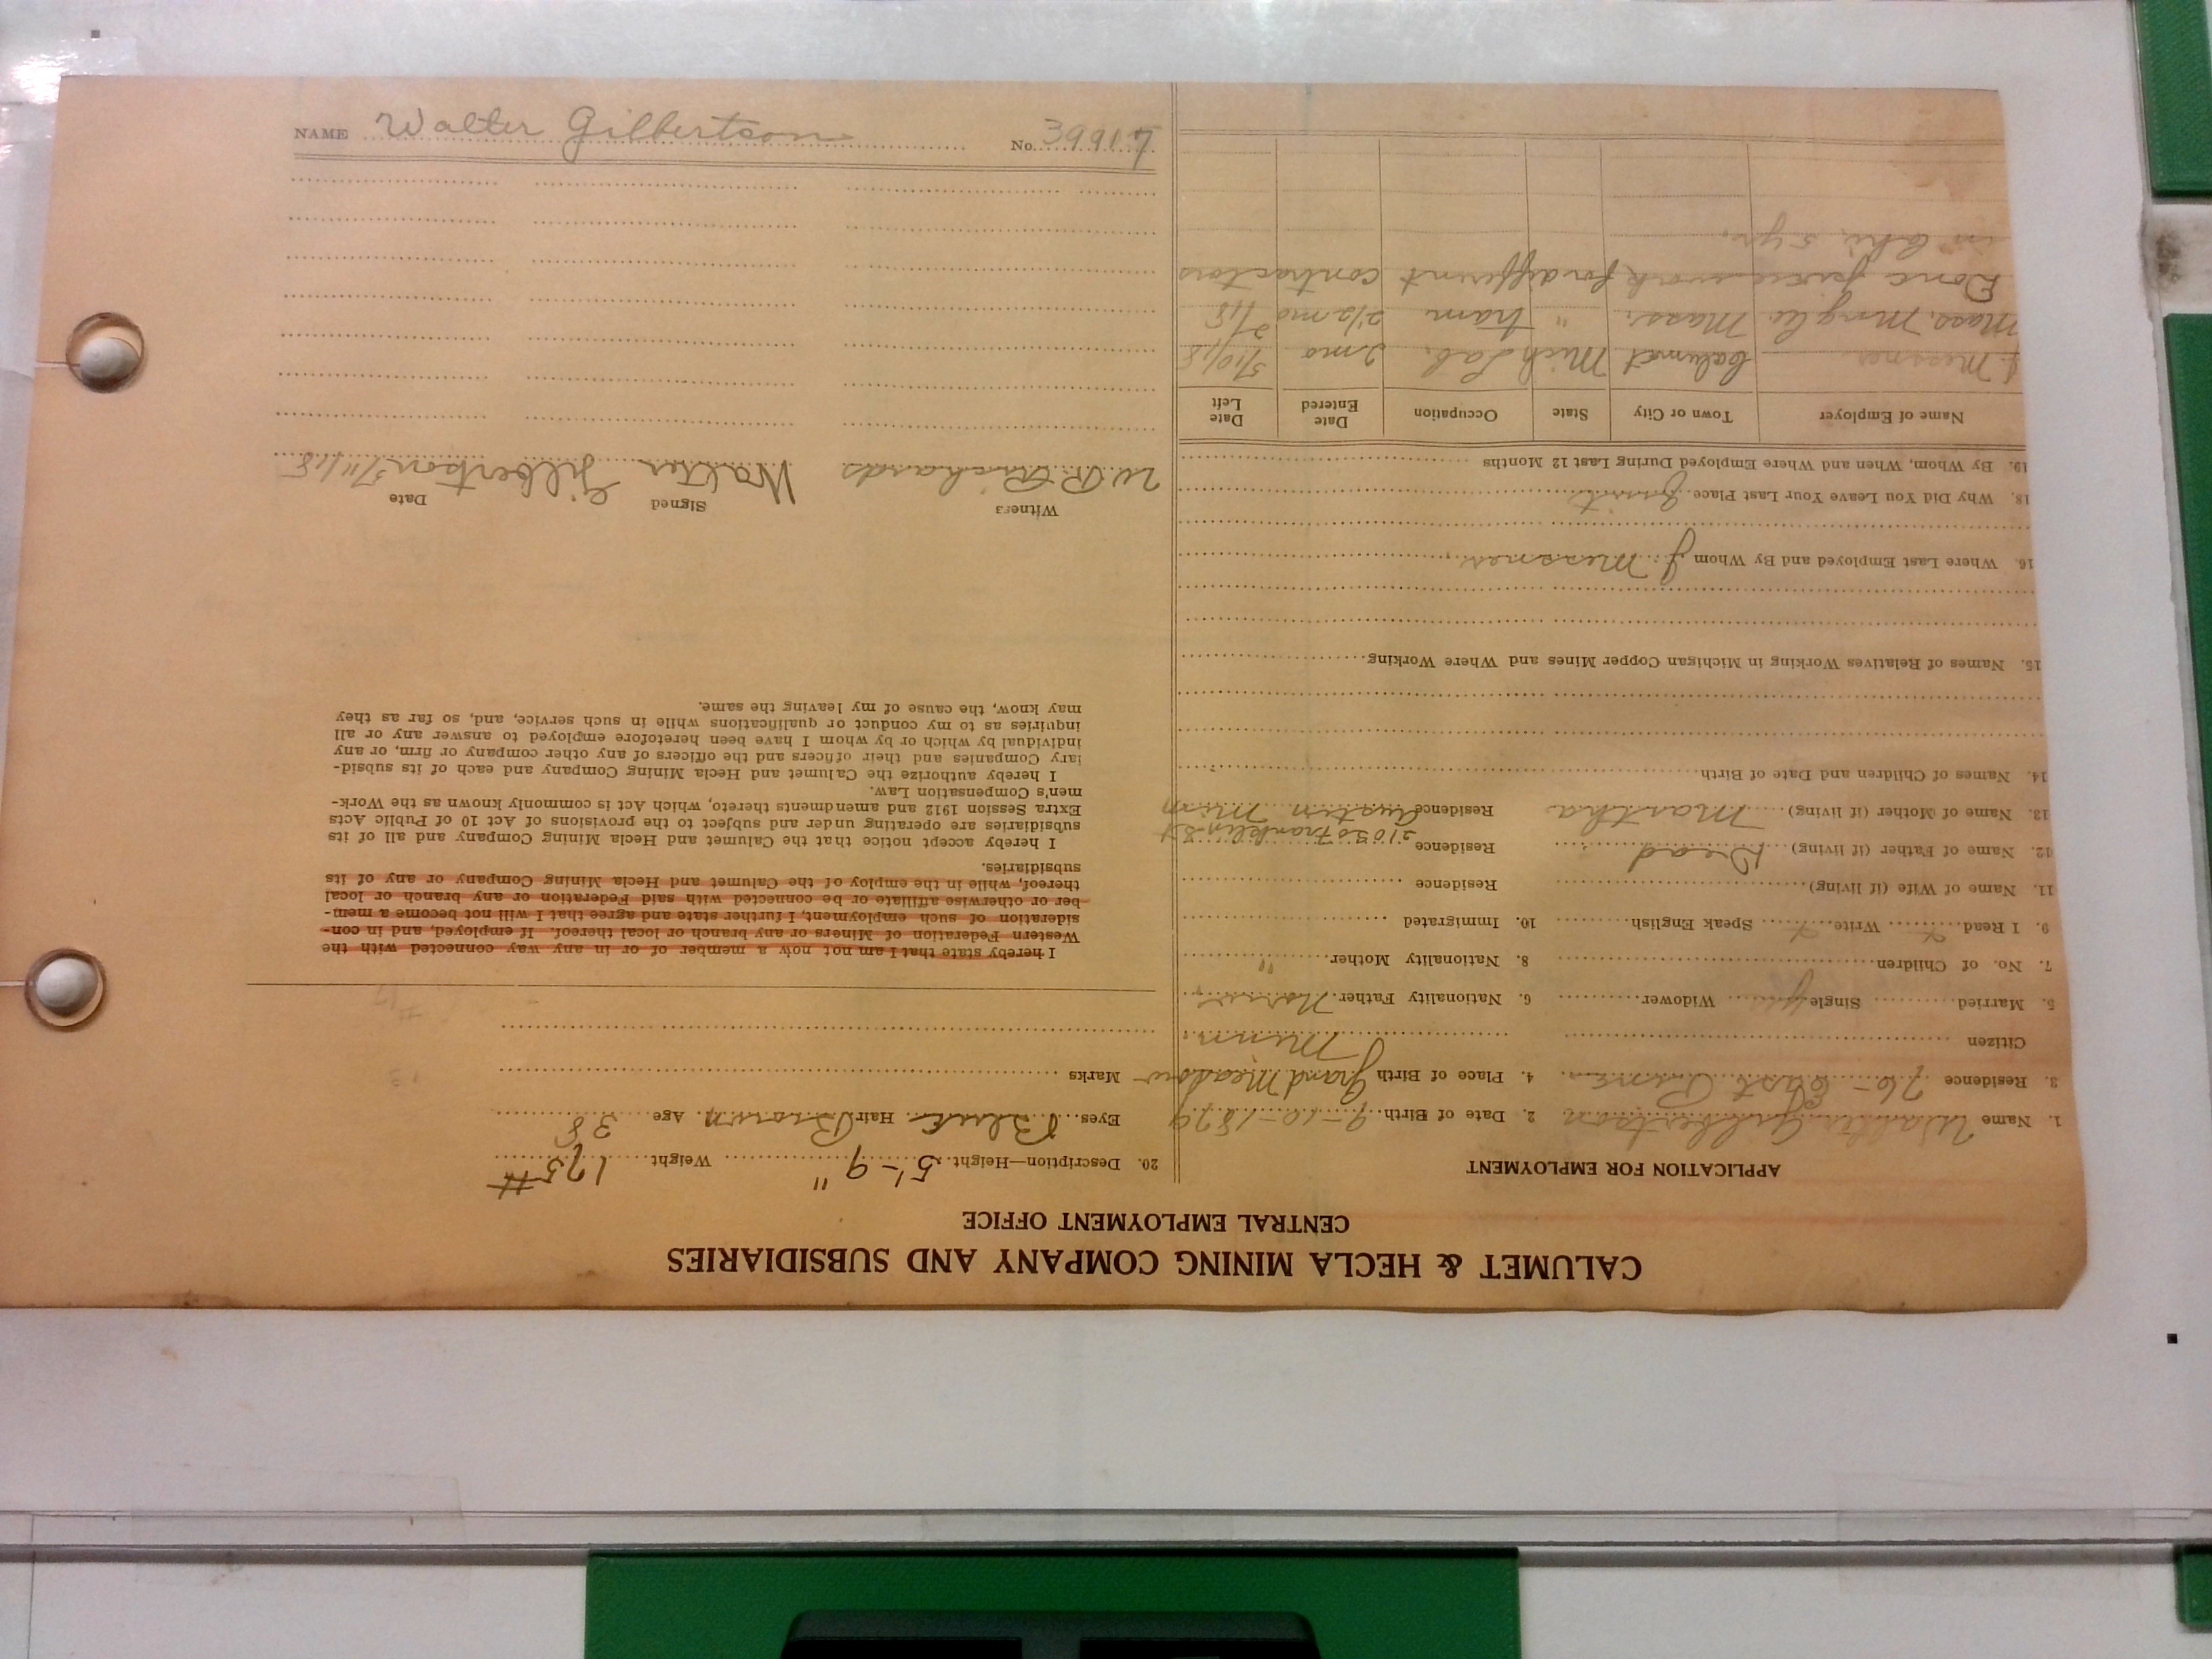 CALUMET & HECLA MINING COMPANY AND SUBSIDIARIES
CENTRAL EMPLOYMENT OFFICE
APPLICATION FOR EMPLOYMENT
1. Name Walter Gilbertson 2. Date of Birth 9-10-1879
3. Residence 76- East 4. Place of Birth Grand Meadow
Citizen Minn.
5. Married Single yes Widower 6. Nationality Father Norwe
7. No. of Children 8. Nationality Mother "
9. I Read Write Speak English 10. Immigrated
11. Name of Wife (if living) Residence
12. Name of Father (if living) Dead Residence
Franklin St
13. Name of Mother (if living) Martha Residence Austin Minn
14. Names of Children and Date of Birth
15. Names of Relatives Working in Michigan Copper Mines and Where Working
16. Where Last Employed and By Whom J. Messner
18. Why Did You Leave Your Last Place Quit
19. By Whom, When and Where Employed During Last 12 Months
Name of Employer Town or City State Occupation Date Entered Date Left
J. Messner Calumet Mich Lab. 2 mo 5/10/18
Mass. Mng Co. Mass. " tram 2 1/2 mo 2/18
Done work for different contractors
5 yr.
20. Description—Height 5'-9" Weight 175#
Eyes Blue Hair Brown Age 38
Marks
I hereby state that I am not now a member of or in any way connected with the
Western Federation of Miners or any branch or local thereof. If employed, and in con-
sideration of such employment, I further state and agree that I will not become a mem-
ber or otherwise affiliate or be connected with said Federation or any branch or local
thereof, while in the employ of the Calumet and Hecla Mining Company or any of its
subsidiaries.
I hereby accept notice that the Calumet and Hecla Mining Company and all of its
subsidiaries are operating under and subject to the provisions of Act 10 of Public Acts
Extra Session 1912 and amendments thereto, which Act is commonly known as the Work-
men's Compensation Law.
I hereby authorize the Calumet and Hecla Mining Company and each of its subsid-
iary Companies and their officers and the officers of any other company or firm, or any
individual by which or by whom I have been heretofore employed to answer any or all
inquiries as to my conduct or qualifications while in such service, and, so far as they
may know, the cause of my leaving the same.
Witness Signed Date
W.R. Richards Walter Gilbertson 5/11/18
NAME Walter Gilbertson No. 39917